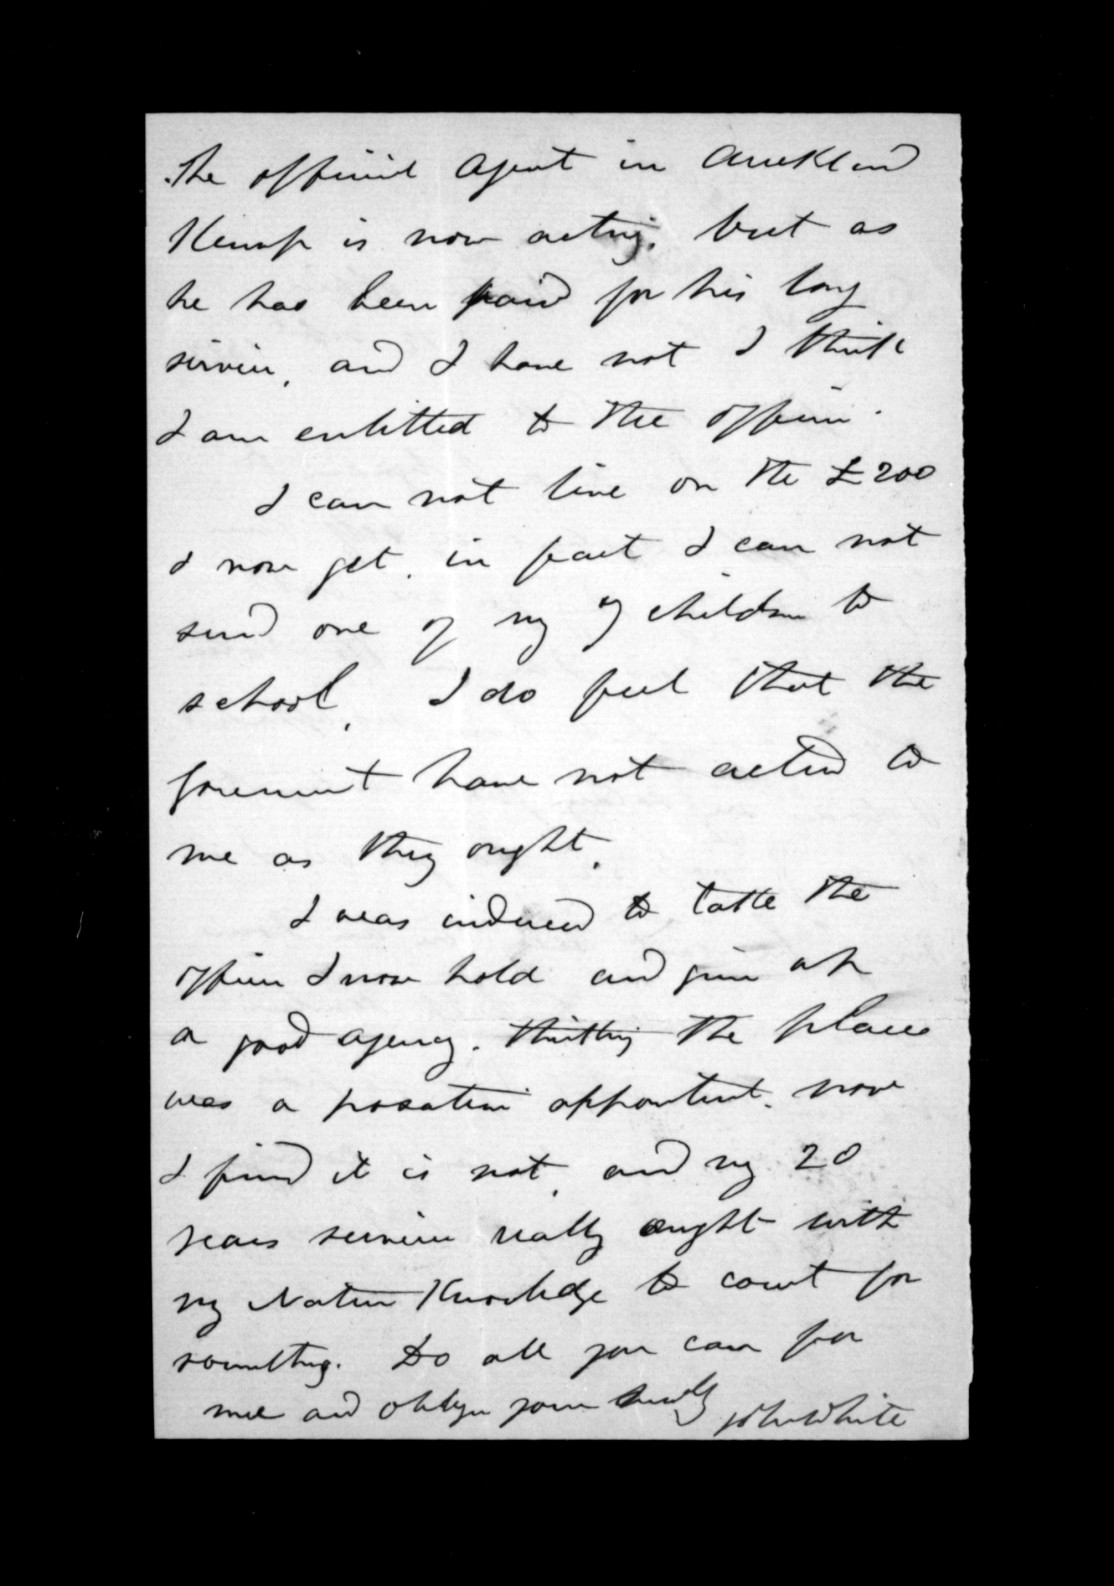 The official Agent in Auckland
Kemp is now acting. but as
he has been paid for his long
service, and I have not I think
I am entitled to the office.
I can not live on the £200
I now get. in fact I can not
send one of my 7 children to
school, I do feel that the
Goverment have not acted to
me as they ought.
I was induced to take the
office I now hold and give up
a good agency. thinking the place
was a appointment. now
I find it is not, and my 20
years service really ought with
my Native Knowledge to count for
something. Do all you can for
me and oblige yours John White